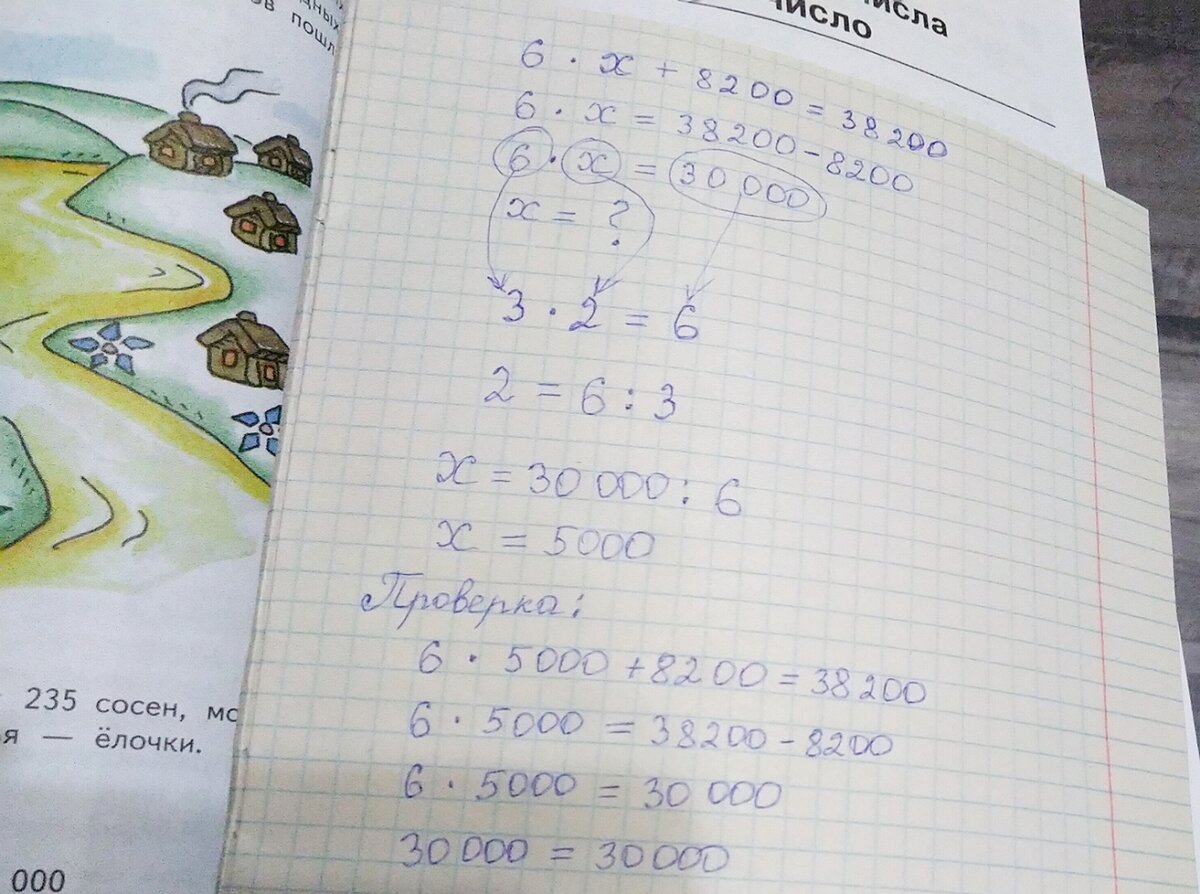 числа
число
пошл
6 · x + 8200 = 38200
6 · x = 38200 - 8200
6 · x = 30 000
x = ?
3 · 2 = 6
2 = 6 : 3
x = 30 000 : 6
x = 5000
Проверка:
6 · 5000 + 8200 = 38200
6 · 5000 = 38200 - 8200
6 · 5000 = 30 000
30 000 = 30 000
235 сосен, мо
я — ёлочки.
000